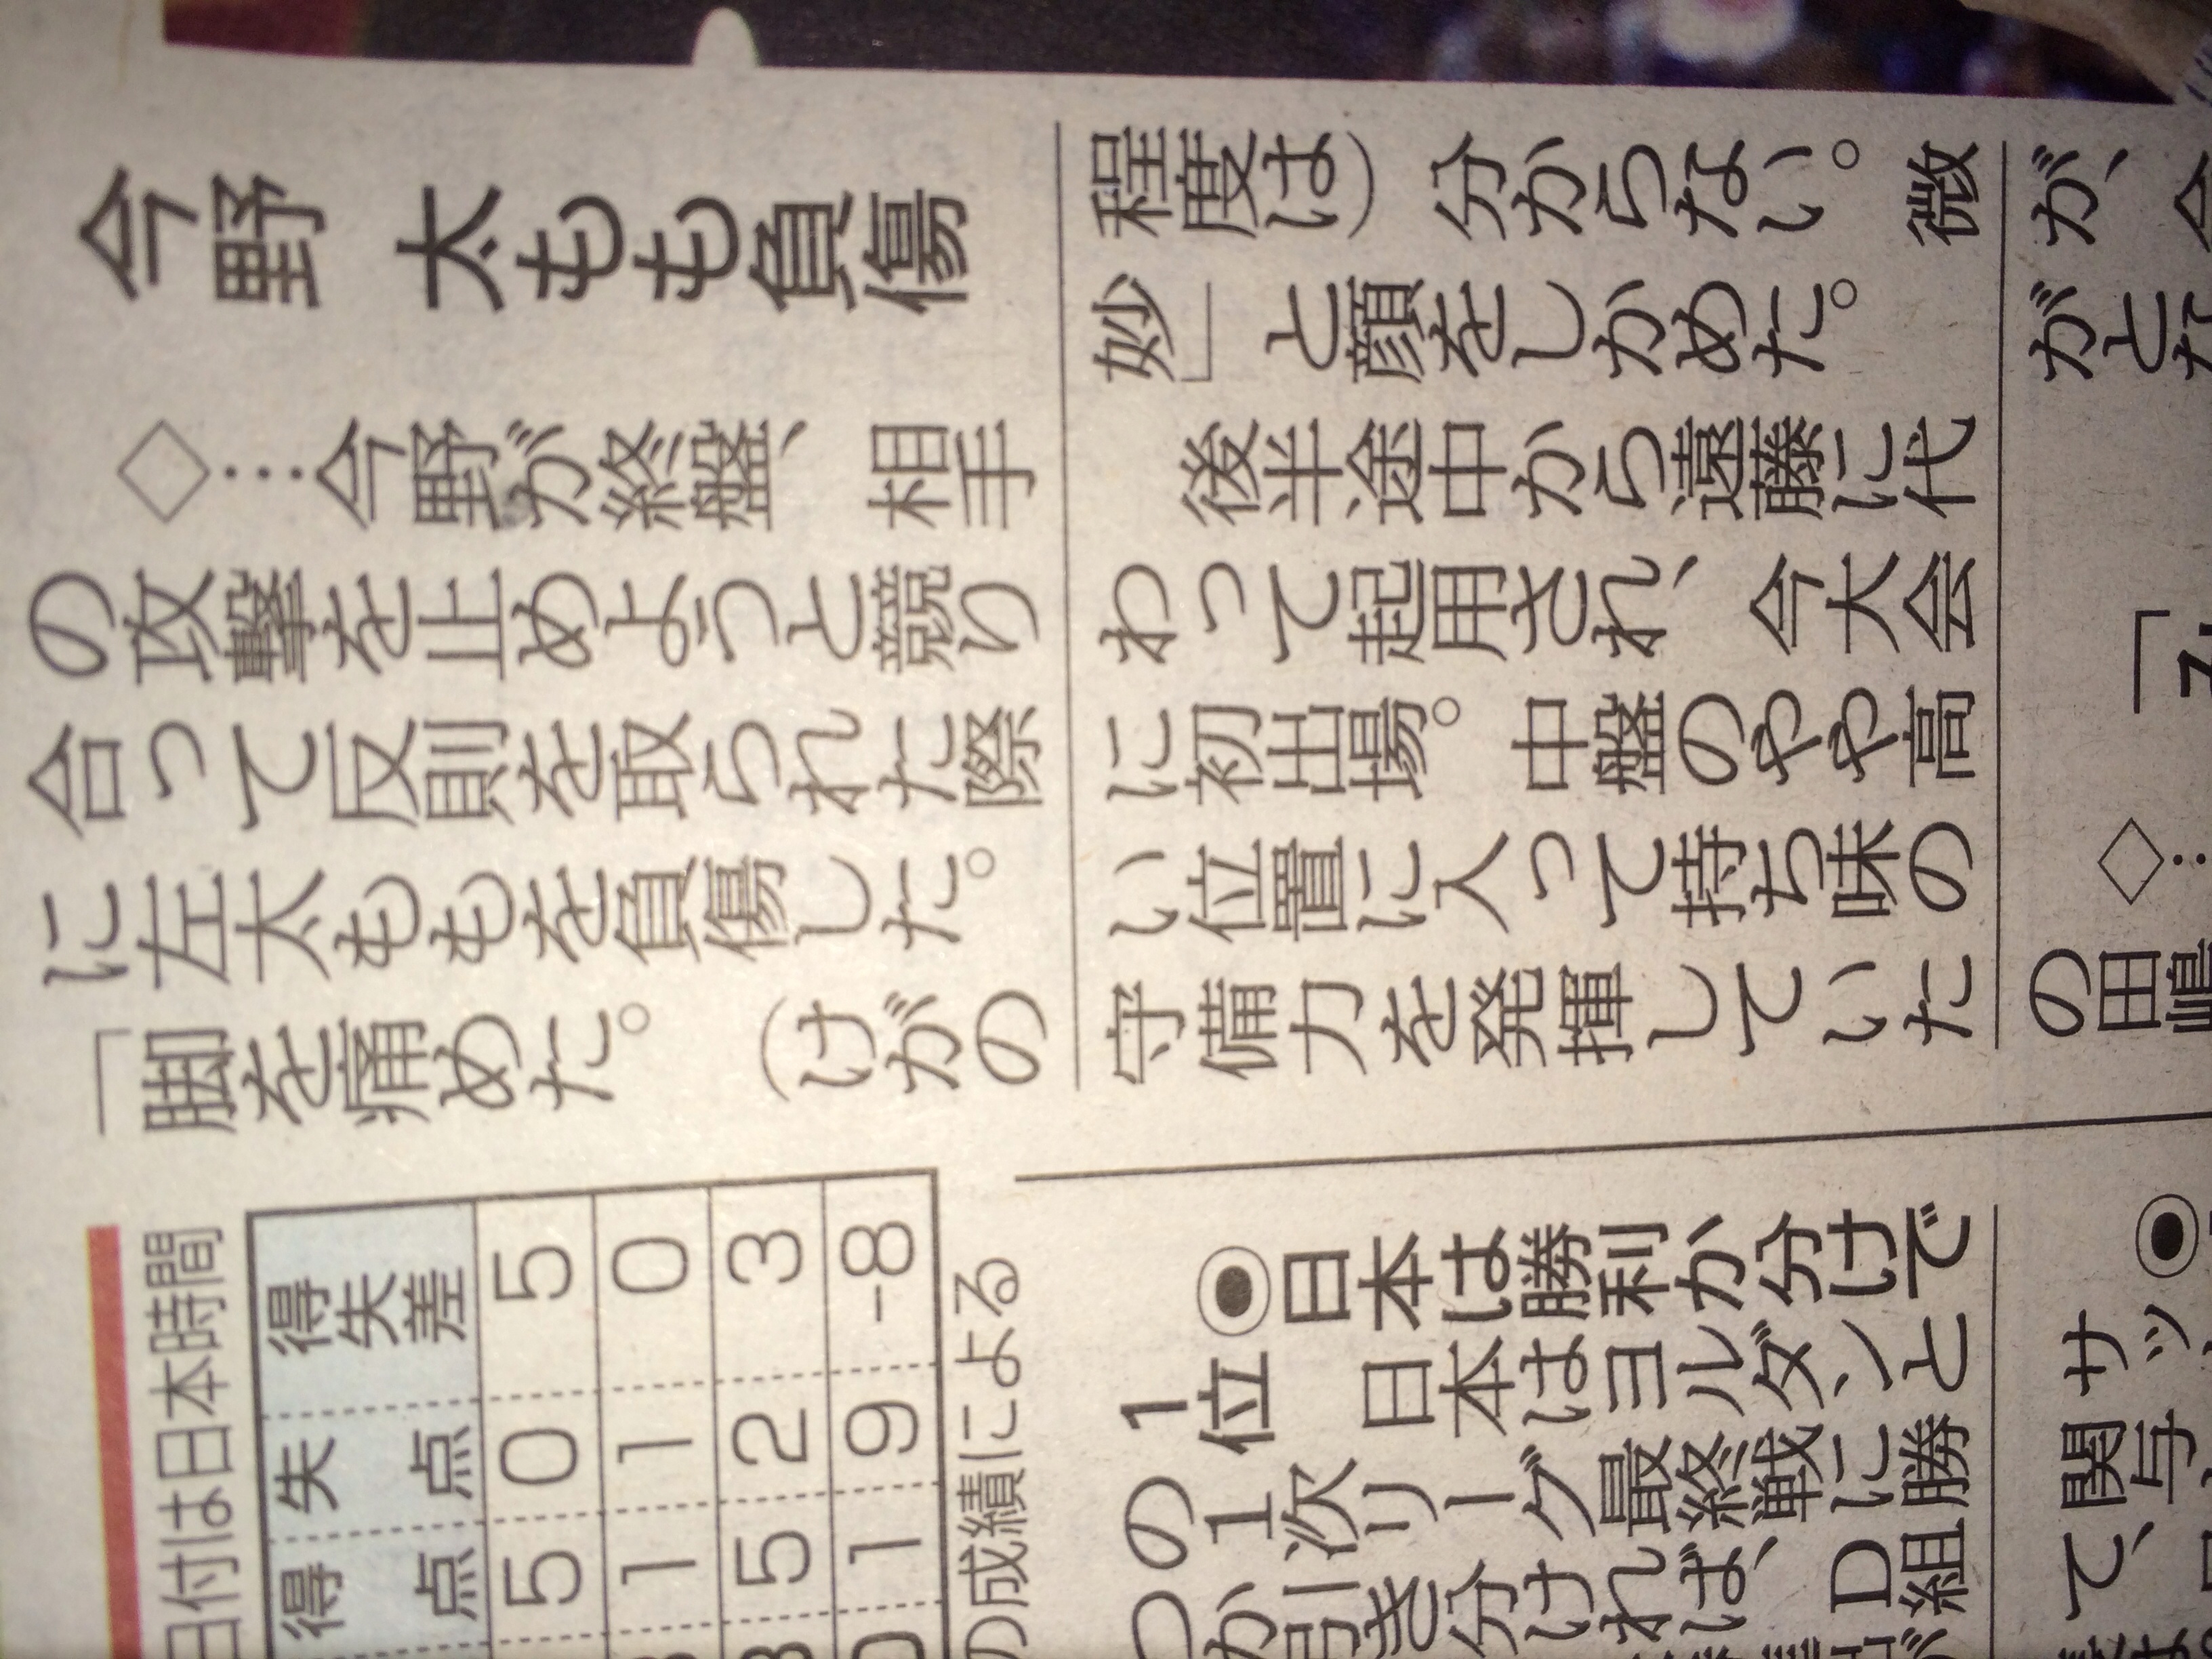 今野 太もも負傷
◇…今野が終盤、相手
の攻撃を止めようと競り
合って反則を取られた際
に左太ももを負傷した。
「脚を痛めた。(けがの
程度は)分からない。微
妙」と顔をしかめた。
後半途中から遠藤に代
わって起用され、今大会
に初出場。中盤のやや高
い位置に入って持ち味の
守備力を発揮していた
が、
がと
「
◇…
の田嶋
日付は日本時間
得点 失点 得失差
5 0 5
1 1 0
5 2 3
1 9 -8
の成績による
◉日本は勝利か分けで
1位
日本はヨルダンと
の1次リーグ最終戦に勝
つか引き分ければ、D組
◉
サッ
関与
て、